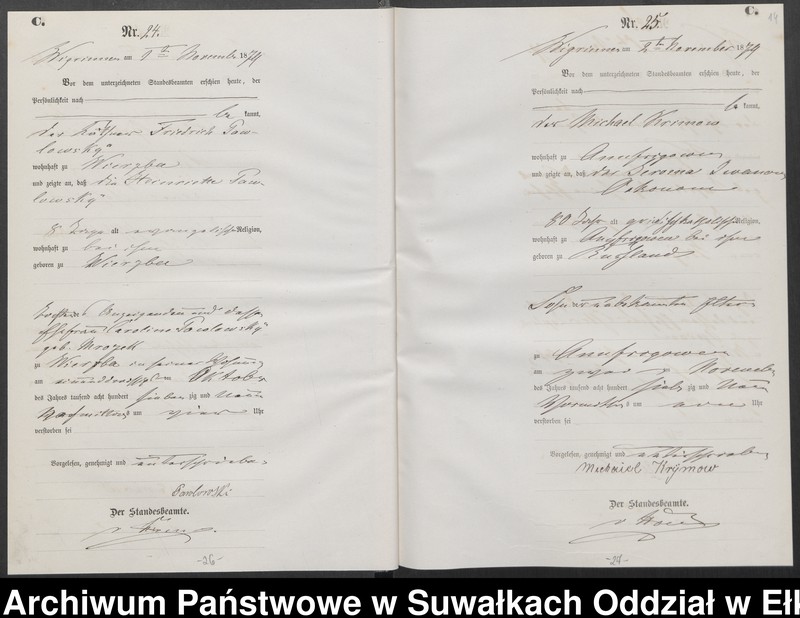 C.
Nr. 24.
Wigrinnen am 1ten November 1879
Vor dem unterzeichneten Standesbeamten erschien heute, der
Persönlichkeit nach
be kannt,
der Käthner Friedrich Paw-
lowsky
wohnhaft zu Wierzba
und zeigte an, daß die Heinriette Paw-
lowsky
8 Tage alt evangelischer Religion,
wohnhaft zu bei ihm
geboren zu Wierzba
Tochter des Anzeigenden und dessen
Ehefrau Caroline Pawlowsky
geb. Mrozek
zu Wierzba in seiner Wohnung
am einunddreißigsten Oktober
des Jahres tausend acht hundert sieben zig und neun
Nachmittags um vier Uhr
verstorben sei
Vorgelesen, genehmigt und unterschrieben
Pawlowski
Der Standesbeamte.
-26-
C.
14
Nr. 25.
Wigrinnen am 2ten November 1879
Vor dem unterzeichneten Standesbeamten erschien heute, der
Persönlichkeit nach
be kannt,
der Michael Krimow
wohnhaft zu Onufrigowen
und zeigte an, daß der Iwanow
80 Jahr alt griechisch katholischer Religion,
wohnhaft zu Onufrigowen bei ihm
geboren zu Rußland
Sohn unbekannter Eltern
zu Onufrigowen
am zwei November
des Jahres tausend acht hundert sieben zig und neun
Vormittags um Uhr
verstorben sei
Vorgelesen, genehmigt und unterschrieben
Michaiel Krÿmow
Der Standesbeamte.
-27-
Archiwum Państwowe w Suwałkach Oddział w Ełk